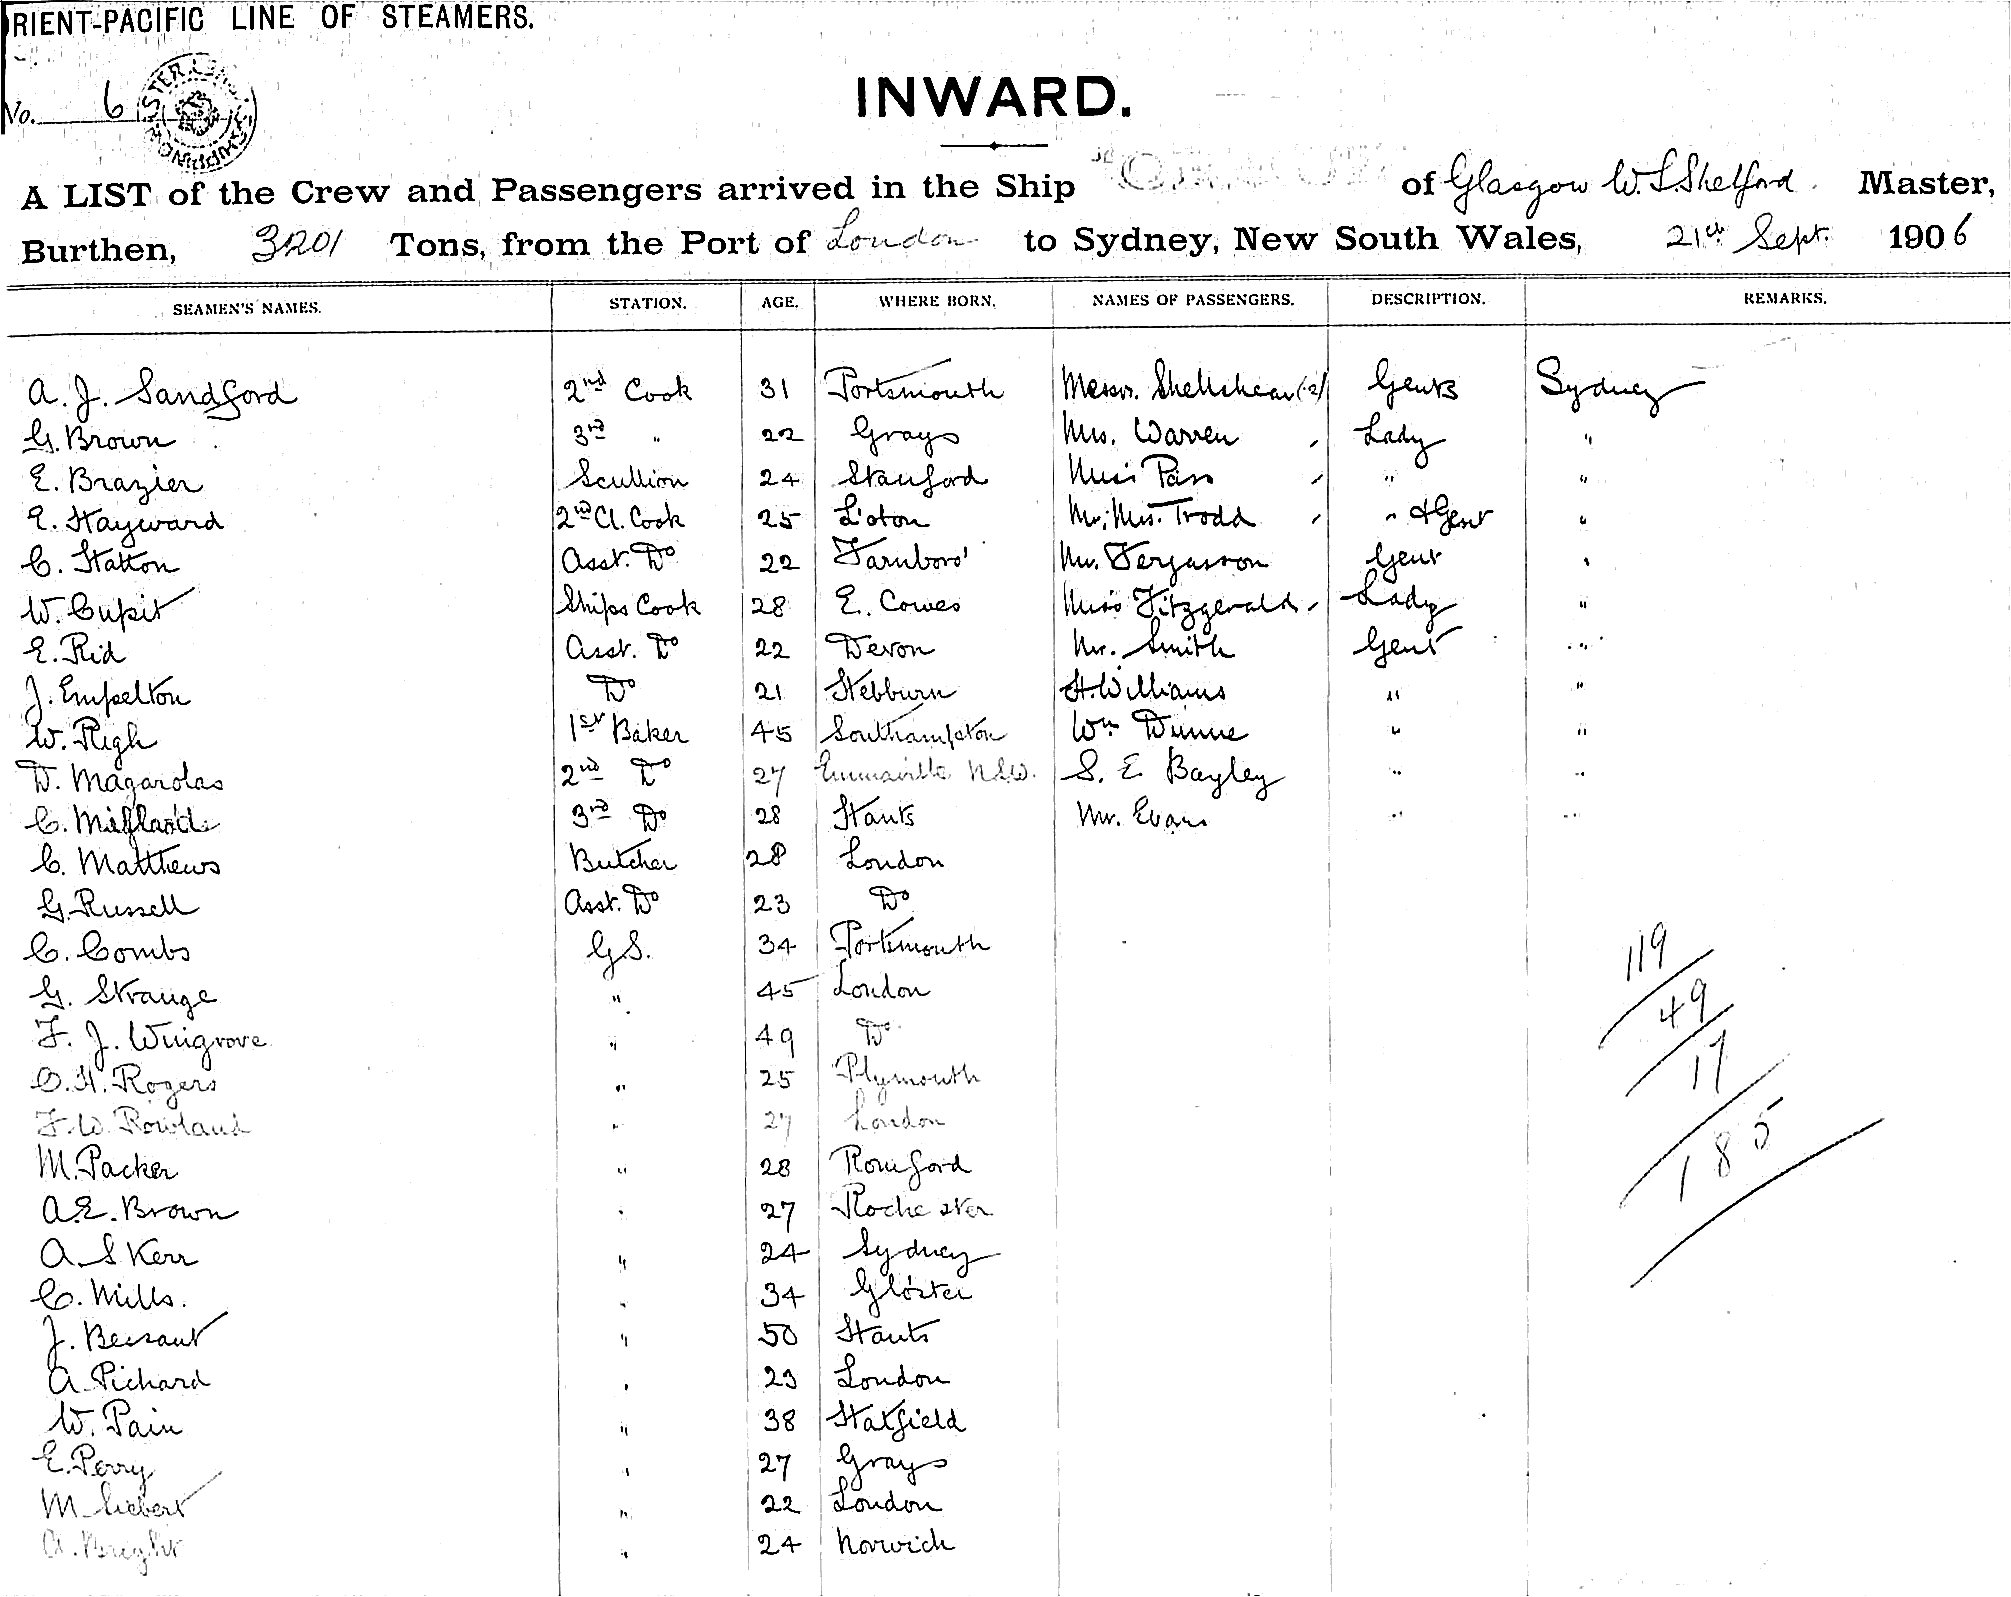 RIENT-PACIFIC LINE OF STEAMERS.
No. 6
INWARD.
A LIST of the Crew and Passengers arrived in the Ship of Glasgow W. S Shelford. Master,
Burthen, 3201 Tons, from the Port of London to Sydney, New South Wales, 21st Sept. 1906
SEAMEN'S NAMES. STATION. AGE. WHERE BORN. NAMES OF PASSENGERS. DESCRIPTION. REMARKS.
A. J. Sandford 2nd Cook 31 Portsmouth Messrs. Shellshear (2) Gents Sydney
G. Brown 3rd " 22 Grays Mrs. Warren Lady "
E. Brazier Scullion 24 Stanford Miss " "
E. Hayward 2nd Cl. Cook 25 L'oton Mr, Mrs. Trodd " & Gent "
C. Hatton Asst. Do 22 Farnboro' Mr. Fergusson Gent "
W. Cupit Ships Cook 28 E. Cowes Miss Fitzgerald Lady "
E. Rid Asst. Do 22 Devon Mr. Smith Gent "
J. Empelton Do 21 Hebburn H. Williams " "
W. Pligh 1st Baker 45 Southampton Wm Dunne " "
D. Magarolas 2nd Do 27 Emmaville N.S.W. S. E Bayley " "
C. 3rd Do 28 Hants Mr. Evans " "
C. Matthews Butcher 28 London
G. Russell Asst. Do 23 Do
C. Combs G.S. 34 Portsmouth
G. Strange " 45 London
F. J. Wingrove " 49 Do
C. H. Rogers " 25 Plymouth
F. W. Rowland " 27 London
M. Packer " 28 Romford
A. E. Brown " 27 Rochester
A. S Kerr " 24 Sydney
C. Mills. " 34 Gloster
J. Bessant " 50 Hants
A. Pichard " 23 London
W. Pain " 38 Hatfield
E. Perry " 27 Grays
M. Siebert " 22 London
A. Bright " 24 Norwich
119
49
17
185